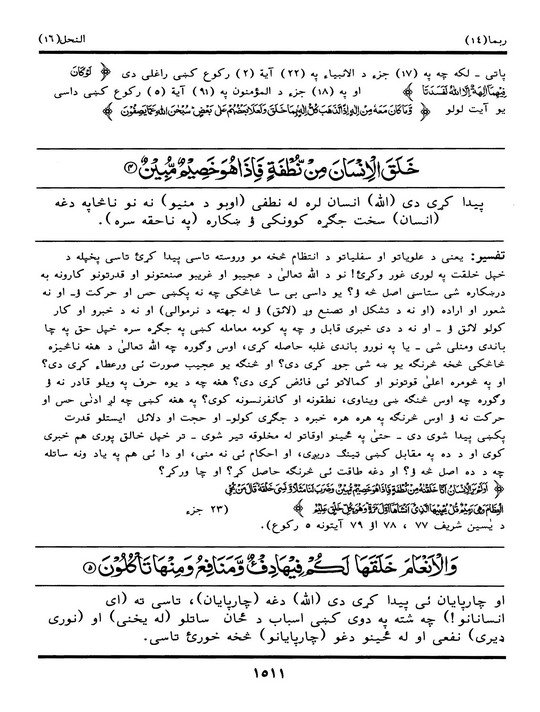 ربما(١٤)
النحل(١٦)
پاتی ـ لکه چه په (١٧) جزء د الانبیاء په (٢٢) آیة (٢) رکوع کښی راغلی دی ﴿ لَوْكَانَ
فِيهِمَآ اٰلِهَةٌ اِلَّا اللّٰهُ لَفَسَدَتَا ﴾ او په (١٨) جزء د المؤمنون په (٩١) آیة (٥) رکوع کښی داسی
یو آیت لولو ﴿ وَمَا كَانَ مَعَهٗ مِنْ اِلٰهٍ اِذًا لَّذَهَبَ كُلُّ اِلٰهٍۢ بِمَا خَلَقَ وَلَعَلَا بَعْضُهُمْ عَلٰى بَعْضٍ سُبْحٰنَ اللّٰهِ عَمَّا يَصِفُوْنَ ﴾
خَلَقَ الْاِنْسَانَ مِنْ نُّطْفَةٍ فَاِذَا هُوَ خَصِيْمٌ مُّبِيْنٌ ﴿٤﴾
پیدا کړی دی (الله) انسان لره له نطفی (اوبو د منیو) نه نو ناڅاپه دغه
(انسان) سخت جګړه کوونکی ؤ ښکاره (په ناحقه سره).
تفسیر: یعنی د علویاتو او سفلیاتو د انتظام څخه مو وروسته تاسی پیدا کړئ تاسی پخپله د
خپل خلقت په لوری غور وکړئ! نو د الله تعالیٰ د عجیبو او غریبو صنعتونو او قدرتونو کارونه به
درښکاره شی ستاسی اصل څه ؤ؟ یو داسی بی سا څاڅکی چه نه پکښی حس او حرکت ؤـ او نه
شعور او اراده (او نه د تشکل او تصنع وړ (لائق) ؤ له جهته د نرموالی) او نه د خبرو او کار
کولو لائق ؤ ـ او نه د دی خبری قابل و چه په کومه معامله کښی په جګړه سره خپل حق په چا
باندی ومنلی شی ـ یا په نورو باندی غلبه حاصله کړی، اوس وګوره چه الله تعالیٰ د هغه ناڅیزه
څاڅکی څخه څرنګه یو ښه شی جوړ کړی دی؟ او څنګه یو عجیب صورت ئی ورعطاء کړی دی؟
او په څومره اعلیٰ قوتونو او کمالاتو ئی فائض کړی دی؟ هغه چه د یوه حرف په ویلو قادر نه ؤ
وګوره چه اوس څنګه ښی ویناوی، نطقونه او کانفرنسونه کوی؟ په هغه کښی چه لږ ادنیٰ حس او
حرکت نه ؤ اوس څرنګه په هره هره خبره د جګړی کولوـ او حجت او دلائل ایستلو قدرت
پکښی پیدا شوی دی ـ حتیٰ په ځینو اوقاتو له مخلوقه تیر شوی ـ تر خپل خالق پوری هم خبری
کوی او د ده په مقابل کښی ټینګ دریږی، او احکام ئی نه منی، او دا ئی هم په یاد ونه ساتله
چه د ده اصل څه ؤ؟ او دغه طاقت ئی څرنګه حاصل کړ؟ او چا ورکړ؟
﴿ اَوَلَمْ يَرَ الْاِنْسَانُ اَنَّا خَلَقْنٰهُ مِنْ نُّطْفَةٍ فَاِذَا هُوَ خَصِيْمٌ مُّبِيْنٌ وَضَرَبَ لَنَا مَثَلًا وَّنَسِىَ خَلْقَهٗ قَالَ مَنْ يُّحْىِ
الْعِظَامَ وَهِىَ رَمِيْمٌ قُلْ يُحْيِيْهَا الَّذِىْٓ اَنْشَاَهَآ اَوَّلَ مَرَّةٍ وَهُوَ بِكُلِّ خَلْقٍ عَلِيْمٌ ﴾ (٢٣ جزء
د یٰسین شریف ٧٧ ، ٧٨ اؤ ٧٩ آیتونه ٥ رکوع).
وَالْاَنْعَامَ خَلَقَهَا لَكُمْ فِيْهَا دِفْءٌ وَّمَنَافِعُ وَمِنْهَا تَاْكُلُوْنَ ﴿٥﴾
او چارپایان ئی پیدا کړی دی (الله) دغه (چارپایان)، تاسی ته (ای
انسانانو!) چه شته په دوی کښی اسباب د ځان ساتلو (له یخنی) او (نوری
ډیری) نفعی او له ځینو دغو (چارپایانو) څخه خورئ تاسی.
١٥١١